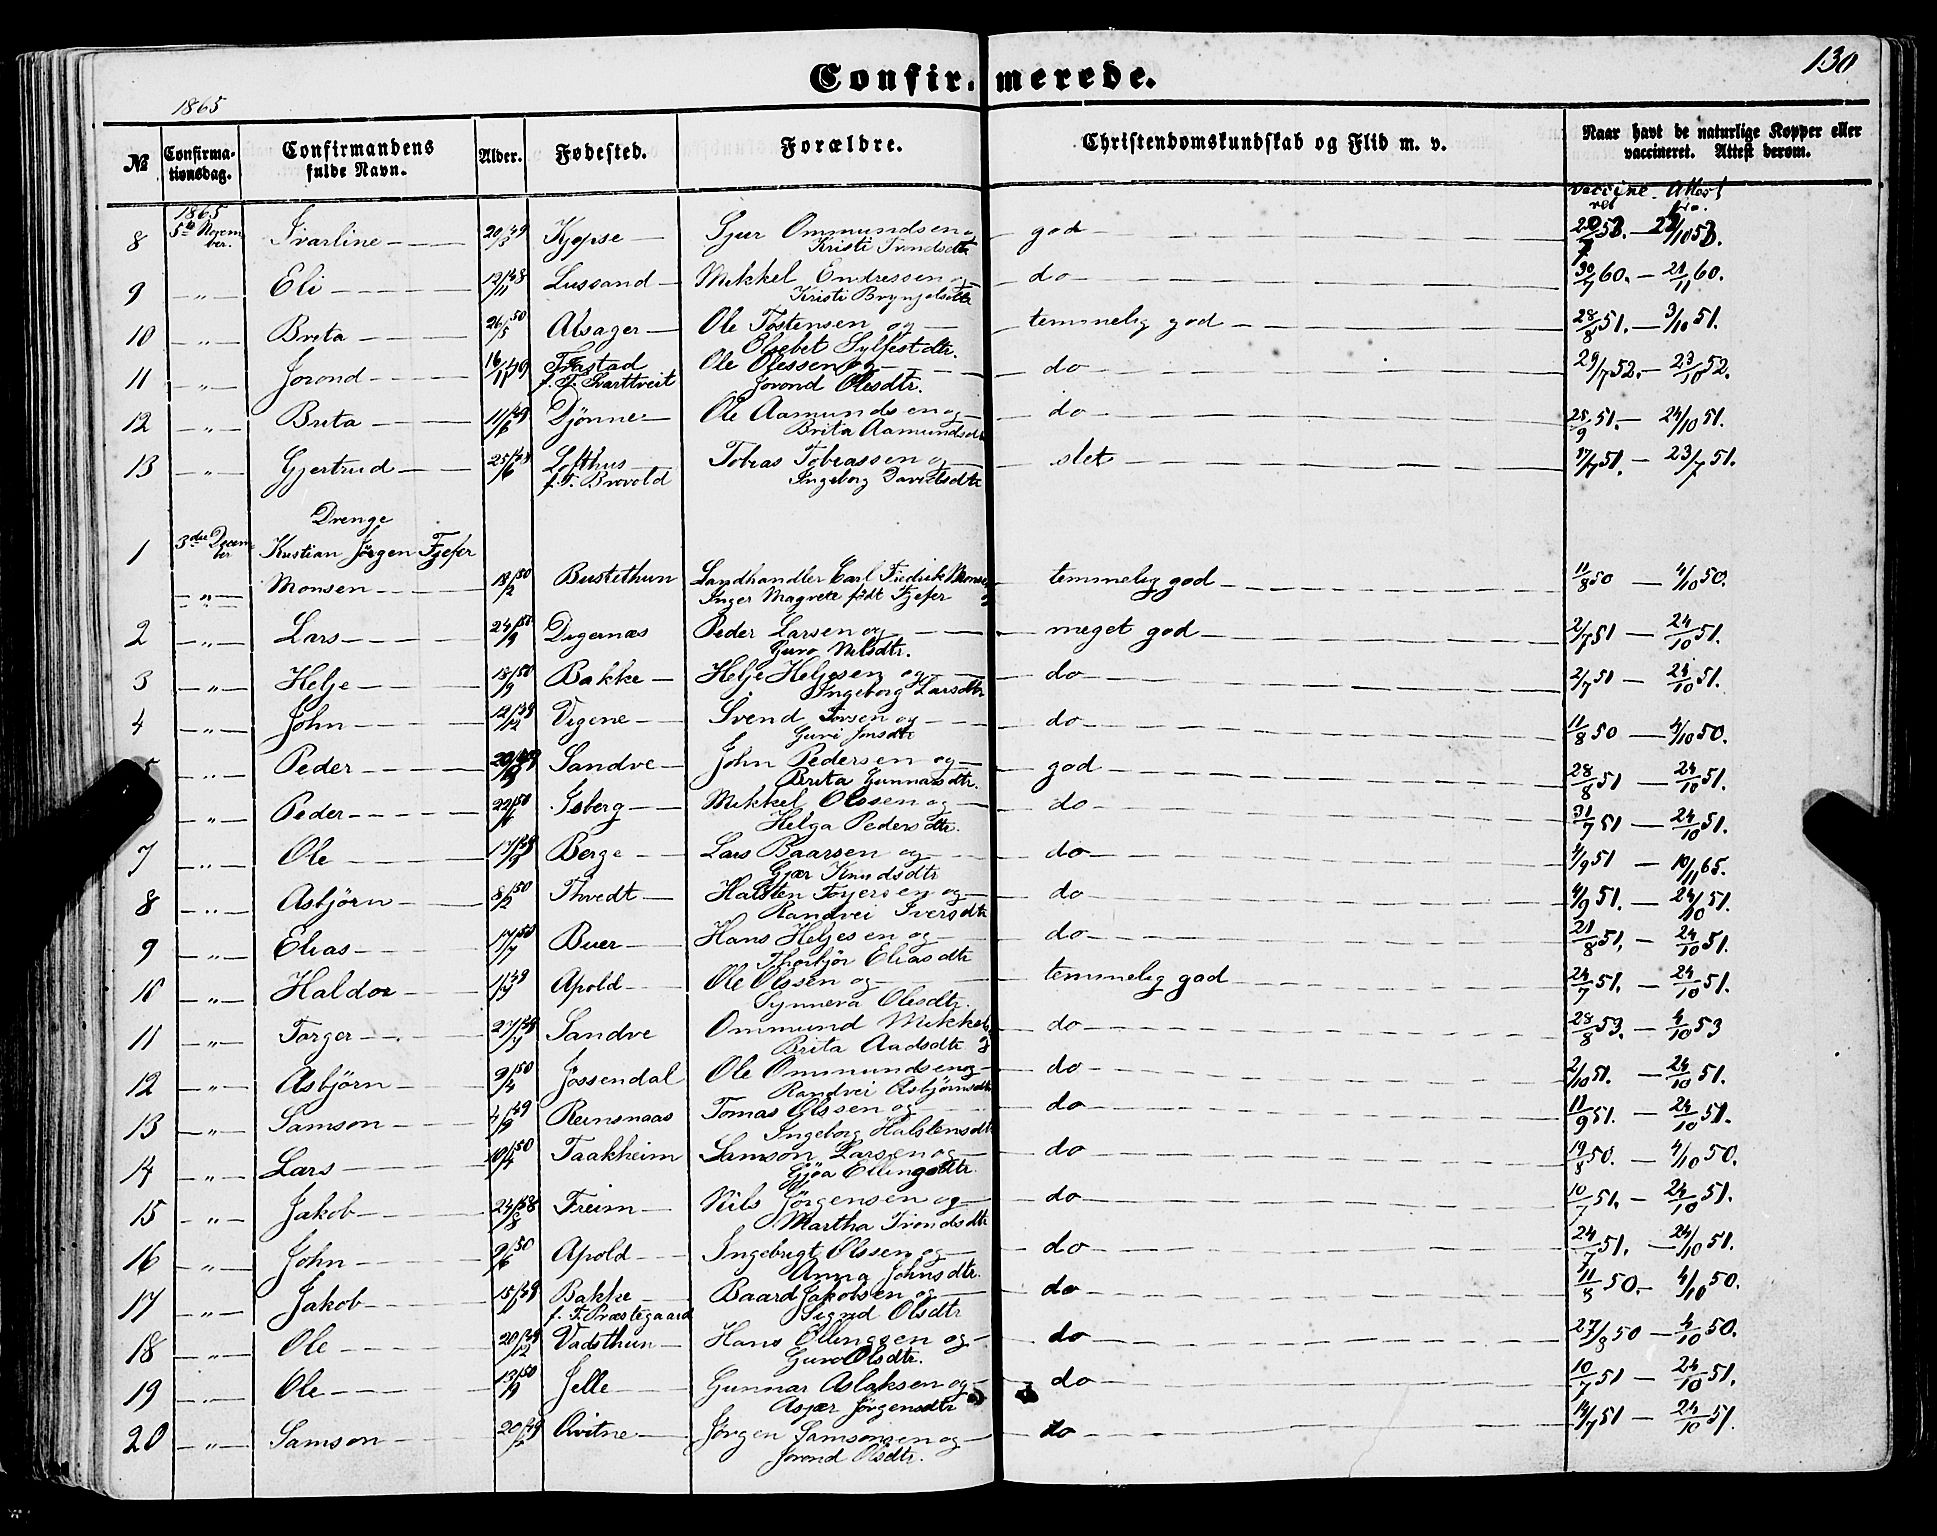 130
Confirmerede.
1865
№ Confirmationsdag. Confirmandens fulde Navn. Alder. Fødested. Forældre. Christendomskundskab og Flid m. v. Naar havt de naturlige Kopper eller vaccineret. Attest derom.
vaccine. Attest
1865
8 5te November. Ivarline 20/3 49 Sjur Ommundsen og god
Kristi
9 " Eli 12/11 48 Lussand Mikkel Endressen og do 30/7 60. — 21/11 60.
Kristi Brynjelsdtr
10 " Brita 26/5 50 Alsager Ole Tostensen og temmelig god 28/8 51. — 3/10 51.
Elsebet Sylfestdtr.
11 " Jorond 16/11 49 Ole Olessen og do 29/7 52. — 23/10 52.
f. T. Jorond Olesdtr.
12 " Brita 11/6 49 Djönne Ole Aamundsen og do 25/9 51. — 24/10 51.
Brita Aamundsdtr
13 " Gjertrud 25/6 Lofthus Tobias Tobiassen og slet 17/7 51. — 23/7 51.
f. T. Brovold Ingeborg Davidsdtr
Drenge
1 3die December Kristian Jörgen Fjefer
" Monsen 18/2 50 Bustethun Landhandler Carl Fredrik Monsen temmelig god 11/8 50 — 4/10 50.
" Inger Magrete födt Fjefer og
2 " Lars 24/9 50 Digernæs Peder Larsen og meget god 2/7 51 — 24/10 51.
Guro Nilsdtr.
3 " Helje 18/9 50 Bakke Helje Heljesen og do 2/7 51 — 24/10 51.
Ingeborg Larsdtr
4 " John 12/12 49 Vigene Svend Iversen og do 11/8 50 — 4/10 50.
Guri Jonsdtr
5 " Peder Sandve John Pedersen og god 28/8 51 — 24/10 51.
Brita Gunnarsdtr.
" Peder 22/4 50 Isberg Mikkel Olssen og do 31/7 51 — 24/10 51.
Helga Pedersdtr.
7 " Ole Berge Lars Baarsen og do 4/9 51 — 10/11 65.
Gjær Knudsdtr
8 " Asbjörn 8/2 50 Thvedt Halsten Torjersen og do 4/9 51. — 24/10 51.
Randvei Iversdtr
9 " Elias 17/7 50 Buer Hans Heljesen og do 21/8 51. — 24/10 51.
Thorbjör Eliasdtr
10 " Haldor Apold Ole Olssen og temmelig god 24/7 51. — 24/10 51.
Synneva Olesdtr.
11 " Torger Sandve Ommund Mikkels. do 28/8 53. — 4/10 53
Brita Aadsdtr
12 " Asbjörn 9/4 50 Jössendal Ole Ommundsen og do 2/10 51. — 24/10 51.
Randvei Asbjörnsdtr
13 " Samson 4/9 49 Reinsnaas Tomas Olssen og do 11/9 51. — 24/10 51.
Ingeborg Halstensdtr
14 " Lars 10/4 50 Taakheim Samson Larsen og do 19/8 50. — 4/10 50.
Gjöa Ellingsdtr.
15 " Jakob 24/8 Freim Nils Jörgensen og do 10/7 51. — 24/10 51.
Martha Trondsdtr
16 " John 2/6 50 Apold Ingebrigt Olssen og do 24/7 51. — 24/10 51.
Anna Johnsdtr.
17 " Jakob Bakke Baard Jakobsen og do 11/8 50. — 4/10 50.
f. T. Præstegaard Sigrid Olsdtr
18 " Ole 20/12 49 Vadsthun Hans Ellingsen og do 27/8 50 — 4/10 50.
Guro Olsdtr.
19 " Ole 13/9 50 Jelle Gunnar Aslaksen og do 10/7 51 — 24/10 51.
Asjær Jörgensdtr
20 " Samson Qvitne Jörgen Samsonsen og do 14/7 51 — 24/10 51.
Jorond Olsdtr.